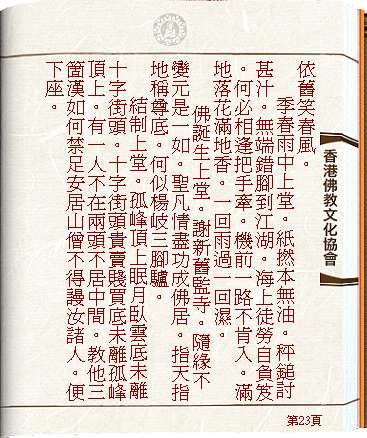 依舊笑春風。
季春雨中上堂。紙撚本無油。秤鎚討
甚汁。無端錯腳到江湖。海上徒勞自負笈
。何必相逢把手牽。機前一路不肯入。滿
地落花滿地香。一回雨過一回濕。
佛誕生上堂。謝新舊監寺。隨緣不
變元是一如。聖凡情盡功成佛居。指天指
地稱尊底。何似楊岐三腳驢。
結制上堂。孤峰頂上眠月臥雲底未離
十字街頭。十字街頭貴賣賤買底未離孤峰
頂上。有一人不在兩頭不居中間。教他三
箇漢如何禁足安居山僧不得謾汝諸人。便
下座。
香港佛教文化協會
第23頁